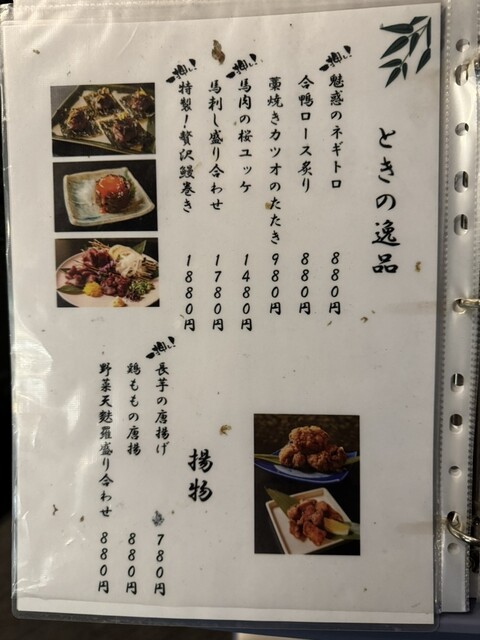 ときの逸品
一押し!
魅惑のネギトロ 880円
合鴨ロース炙り 880円
藁焼きカツオのたたき 980円
一押し!
馬肉の桜ユッケ 1480円
馬刺し盛り合わせ 1780円
一押し!
特製!贅沢鰻巻き 1880円
揚物
一押し!
長芋の唐揚げ 780円
鶏ももの唐揚 880円
野菜天麩羅盛り合わせ 880円